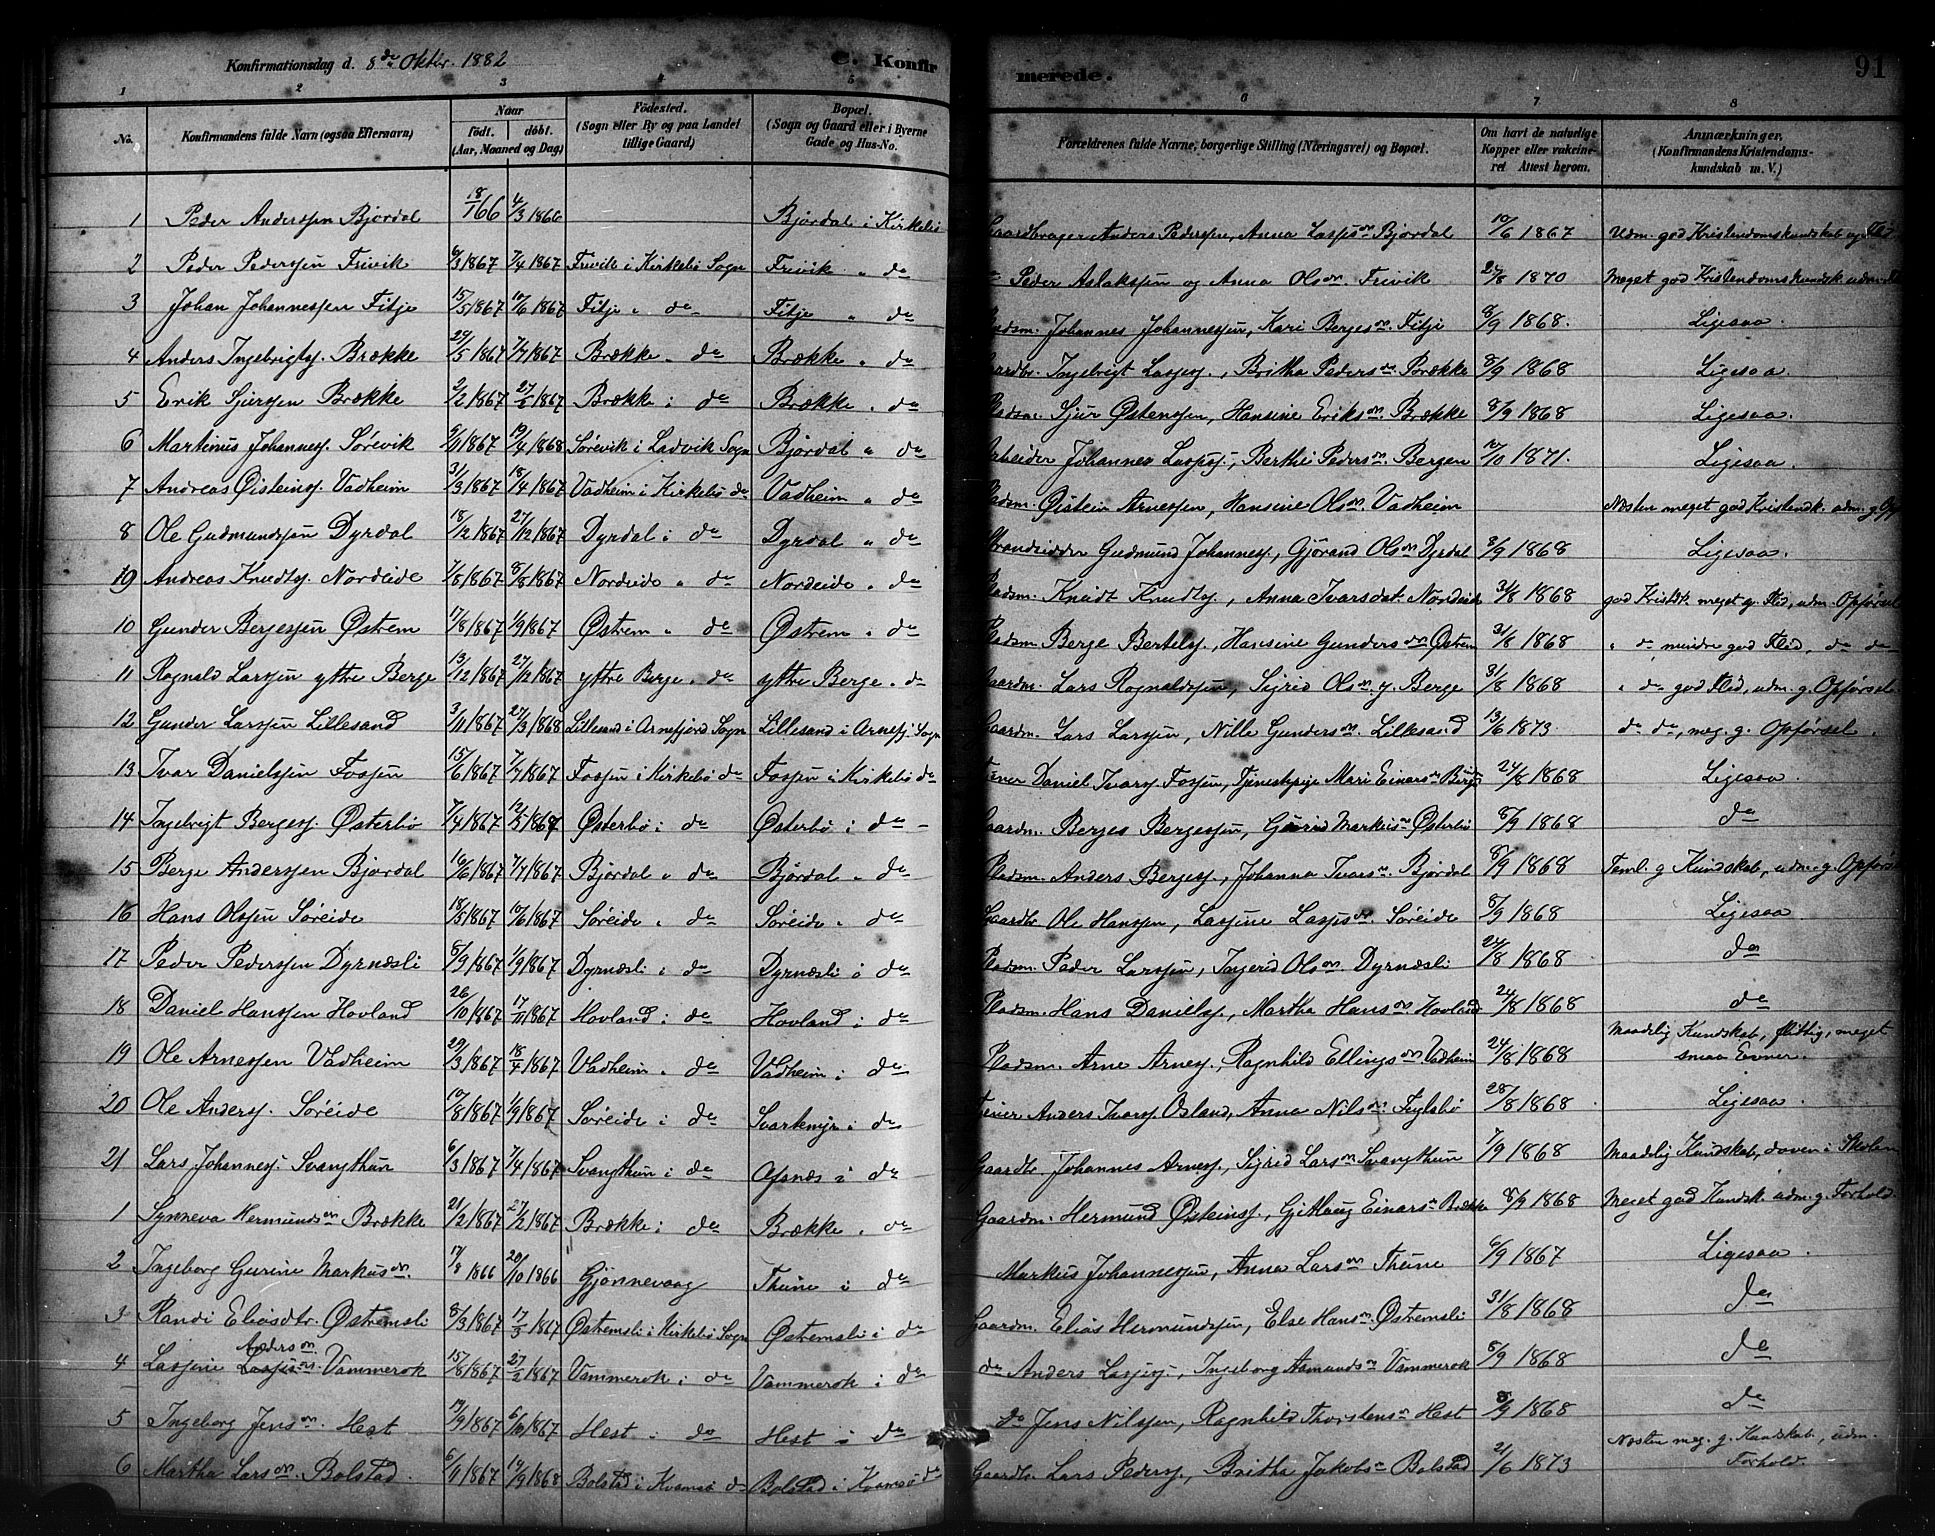 Konfirmationsdag d. 8de Oktbr. 1882 C. Konfirmerede. 91
1 2 3 4 5 6 7 8
No. Konfirmandens fulde Navn (ogsaa Efternavn) Naar født. døbt. (Aar, Maaned og Dag) Fødested. (Sogn eller By og paa Landet tillige Gaard) Bopæl. (Sogn og Gaard eller i Byerne Gade og Hus-No. Forældrenes fulde Navne, borgerlige Stilling (Næringsvei) og Bopæl. Om havt de naturlige Kopper eller vakcineret Attest herom. Anmærkninger. (Konfirmandens Kristendomskundskab m. V.)
1 Peder Anderssen Bjørdal 18/1 66 4/3 1866 Bjørdal i Kirkebø Gaardbruger Anders Pederssen, Anna Lasses on Bjørdal 10/6 1867 Udm. god Kristendomskundskab og Flid
2 Peder Pederssen Frivik 6/3 1867 7/4 1867 Frivik i Kirkebø Sogn Frivik " do Peder Aslakssen og Anna Ols on Frivik 24/8 1870 Meget god Kristendomskundsk. udm.
3 Johan Johannessen Fitje 15/5 1867 10/6 1867 Fitje " do Fitje " do Pladsm. Johannes Johannessen, Kari Berges on Fitje 8/9 1868. Ligesaa.
4 Anders Ingebrigts. Brække 24/5 1867 7/7 1867 Brække " do Brække " do Gaardbr. Ingebrigt Lasses., Britha Peders on Brække 8/9 1868 Ligesaa.
5 Erik Sjurssen Brække 2/2 1867 27/2 1867 Brække i do Brække " do Pladsm. Sjur Østenssen, Hansine Eriks on Brække 8/9 1868 Ligesaa.
6 Martinus Johannes. Sørevik 9/11 1867 19/4 1868 Sørevik i Ladvik Sogn Bjørdal " do Arbeider Johannes Lasses., Berthe Peders on Bergen 12/10 1871. Ligesaa.
7 Andreas Øisteins. Vadheim 31/3 1867 18/4 1867 Vadheim i Kirkebø do Vadheim " do Pladsm. Øistein Arnessen, Hansine Ols on Vadheim Næsten meget god Kristendk. udm. g. Opf
8 Ole Gudmundssen Dyrdal 18/12 1867 27/12 1867 Dyrdal i do Dyrdal " do Strandsidder Gudmund Johannes., Gjørand Ols on Dyrdal 8/9 1868 Ligesaa.
19 Andreas Knudts. Nordeide 1/8 1867 8/8 1867 Nordeide " do Nordeide " do Pladsm. Knudt Knudts., Anna Ivarsdat. Nordeide 31/8 1868 god Kristdk meget g. Flid, udm. Opførsel
10 Gunder Bergessen Østrem 17/8 1867 1/9 1867 Østrem " do Østrem " do Pladsm. Berge Bertels., Hansine Gunders on Østrem 31/8 1868 " do mindre god Flid, do do
11 Ragnald Larssen yttre Berge 13/12 1867 27/12 1867 yttre Berge " do yttre Berge " do Gaardm. Lars Ragnaldssen, Sigrid Ols on y. Berge 31/8 1868 " do god Flid, udm. g. Opførsel
12 Gunder Larssen Lillesand 3/11 1867 27/3 1868 Lillesand i Arnefjord Sogn Lillesand i Arnefj. Sogn Gaardm. Lars Larssen, Nille Gunders on Lillesand 13/6 1873. do do, meg. g. Opførsel.
13 Ivar Danielssen Fossen 15/6 1867 7/7 1867 Fossen i Kirkebø do Fossen i Kirkebø do Daniel Ivars. Fossen, Tjenestepige Mari Einars on Berge 24/8 1868 Ligesaa.
14 Ingebrigt Berges. Østerbø 7/4 1867 12/5 1867 Østerbø i do Østerbø i do Gaardm. Berges Bergessen, Guurid Markus on Østerbø 8/9 1868 do
15 Berge Anderssen Bjørdal 10/6 1867 7/7 1867 Bjørdal " do Bjørdal " do Pladsm. Anders Berges., Johanna Ivars on Bjørdal 8/9 1868 Teml. g Kundskab, udm. g Opførs
16 Hans Olssen Søreide 18/5 1867 10/6 1867 Søreide " do Søreide " do Gaardbr Ole Hanssen, Lassine Lasses on Søreide 8/9 1868 Ligesaa.
17 Peder Pederssen Dyrnæsli 8/9 1867 1/9 1867 Dyrnæsli i do Dyrnæsli i do Pladsm. Peder Larssen, Ingerid Ols on Dyrnæsli 24/8 1868 do
18 Daniel Hanssen Hovland 26/10 1867 17/11 1867 Hovland i do Hovland i do Pladsm. Hans Daniels., Martha Hans on Hovland 24/8 1868 do
19 Ole Arnessen Vadheim 29/3 1867 18/4 1867 Vadheim " do Vadheim i do Pladsm. Arne Arnes., Ragnhild Ellings on Vadheim 24/8 1868 Maadelig Kundskab, flittig, meget smaa Evner.
20 Ole Anders. Søreide 10/8 1867 1/9 1867 Søreide i do Svartemyr i do Anders Ivars. Osland, Anna Nils on Fuglsbø 28/8 1868 Ligesaa.
21 Lars Johannes. Svangthun 6/3 1867 7/4 1867 Svangthun i do Ofsnæs i do Gaardbr. Johannes Arnes., Sigrid Lars on Svangthun 7/9 1868 Maadelig Kundskab, doven i Skolen
1 Synneva Hermunds on Brække 21/2 1867 27/2 1867 Brække i do Brække " do Gaardm. Hermund Østeins., Gjitlaug Einars on Brække 8/9 1868 Meget god Kundsk. udm. g. Forhold.
2 Ingeborg Gurine Markus on. 17/8 1866 20/10 1866 Gjønnevaag Thune i do Markus Johannessen, Anna Lars on Thune 6/9 1867 Ligesaa.
3 Randi Eliasdtr. Østremsli 8/3 1867 17/3 1867 Østremsli i Kirkebø Sogn Østremsli i do Gaardm. Elias Hermundssen, Else Hans on Østremsli 31/8 1868 do
4 Lassine Lasses on Anders on. Vammerok 15/8 1867 27/2 1867 Vammerok i do Vammerok i do do Anders Lasses., Ingeborg Asmunds on Vammerok 8/9 1868 do
5 Ingeborg Jens on. Hest 19/9 1867 6/10 1867 Hest i do Hest i do do Jens Nilssen, Ragnhild Thorstens on Hest 8/9 1868 do
6 Martha Lars on. Bolstad. 6/11 1867 14/9 1868 Bolstad i Kvamsø do Bolstad i Kvamsø do Gaardbr Lars Peders., Britha Jakobs on Bolstad 21/6 1873 Næsten meg. g. Kundskab, udm. Forhold.